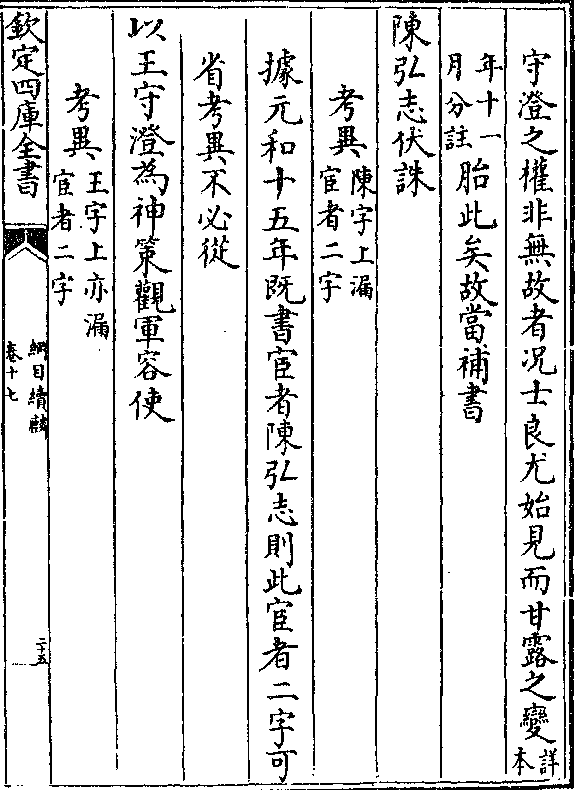 守澄之權非無故者况士良尤始見而甘露之變詳本
年十一月分註胎此矣故當補書
陳弘志伏誅
考異陳字上漏宦者二字
據元和十五年既書宦者陳弘志則此宦者二字可
省考異不必從
以王守澄為神策觀軍容使
考異王字上亦漏宦者二字
欽定四庫全書
綱目續麟
卷十七
二十五